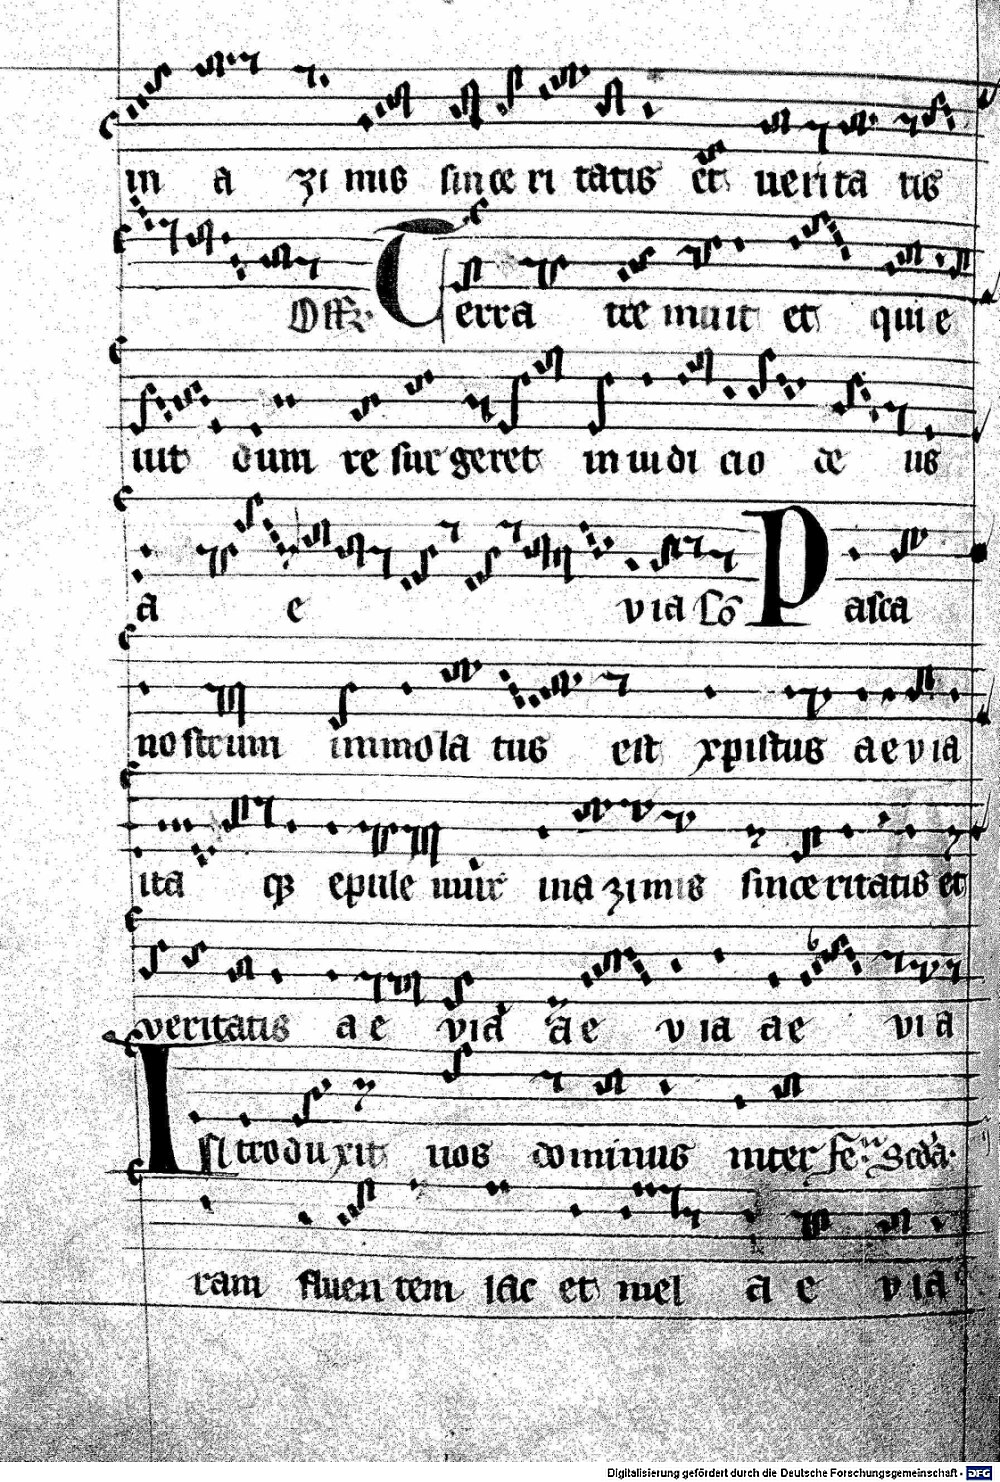 in a zi mus sin ce ri tatis et ueri ta tis
Offr. Terra tre muit et qui e
uit dum re sur geret in iudi cio de us
a e via Co Pasca
nostrum immola tus est xpistus aevia
ita epule mur in a zimis sinceritatis et
veritatis a e via a e v ia a e via
Introduxit uos dominus inter fe scda
ram fluen tem lac et mel a e via
Digitalisierung gefördert durch die Deutsche Forschungsgemeinschaft - DFG